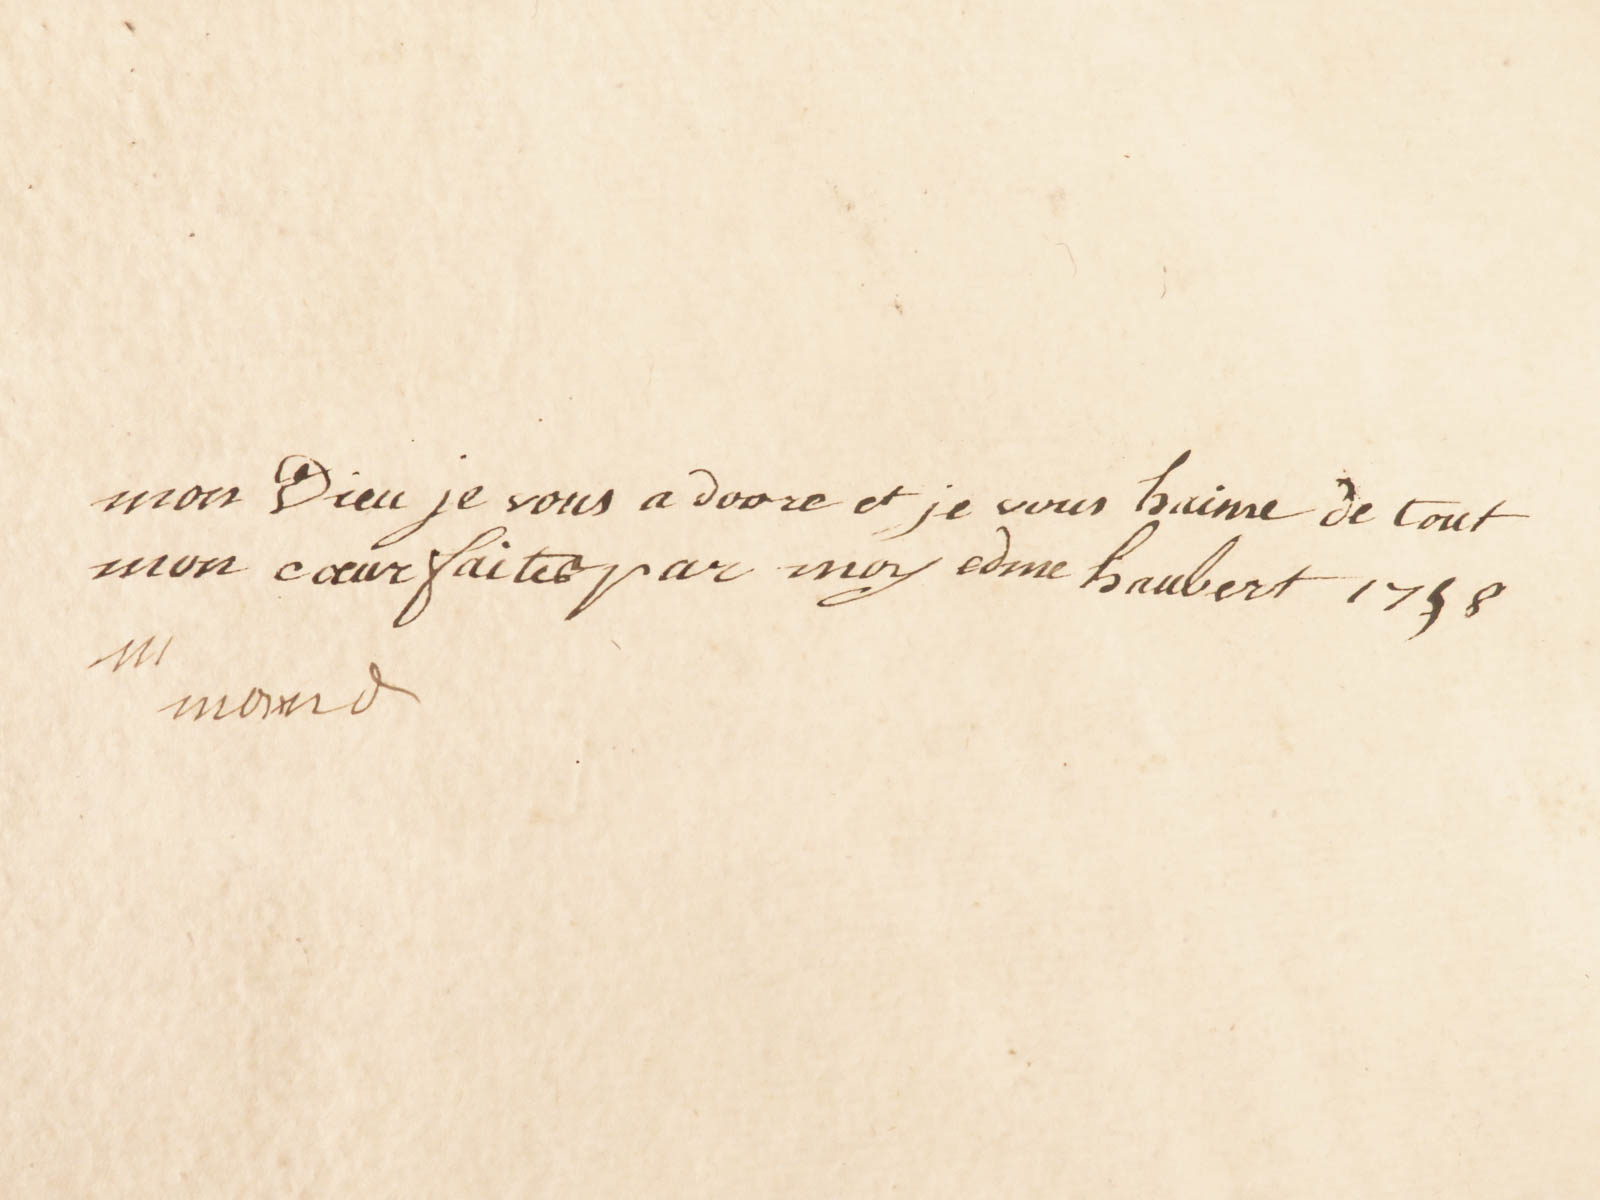 mon Dieu je vous adoore et je vous haime de tout
mon cœur faites par moy edme haubert 1758
m